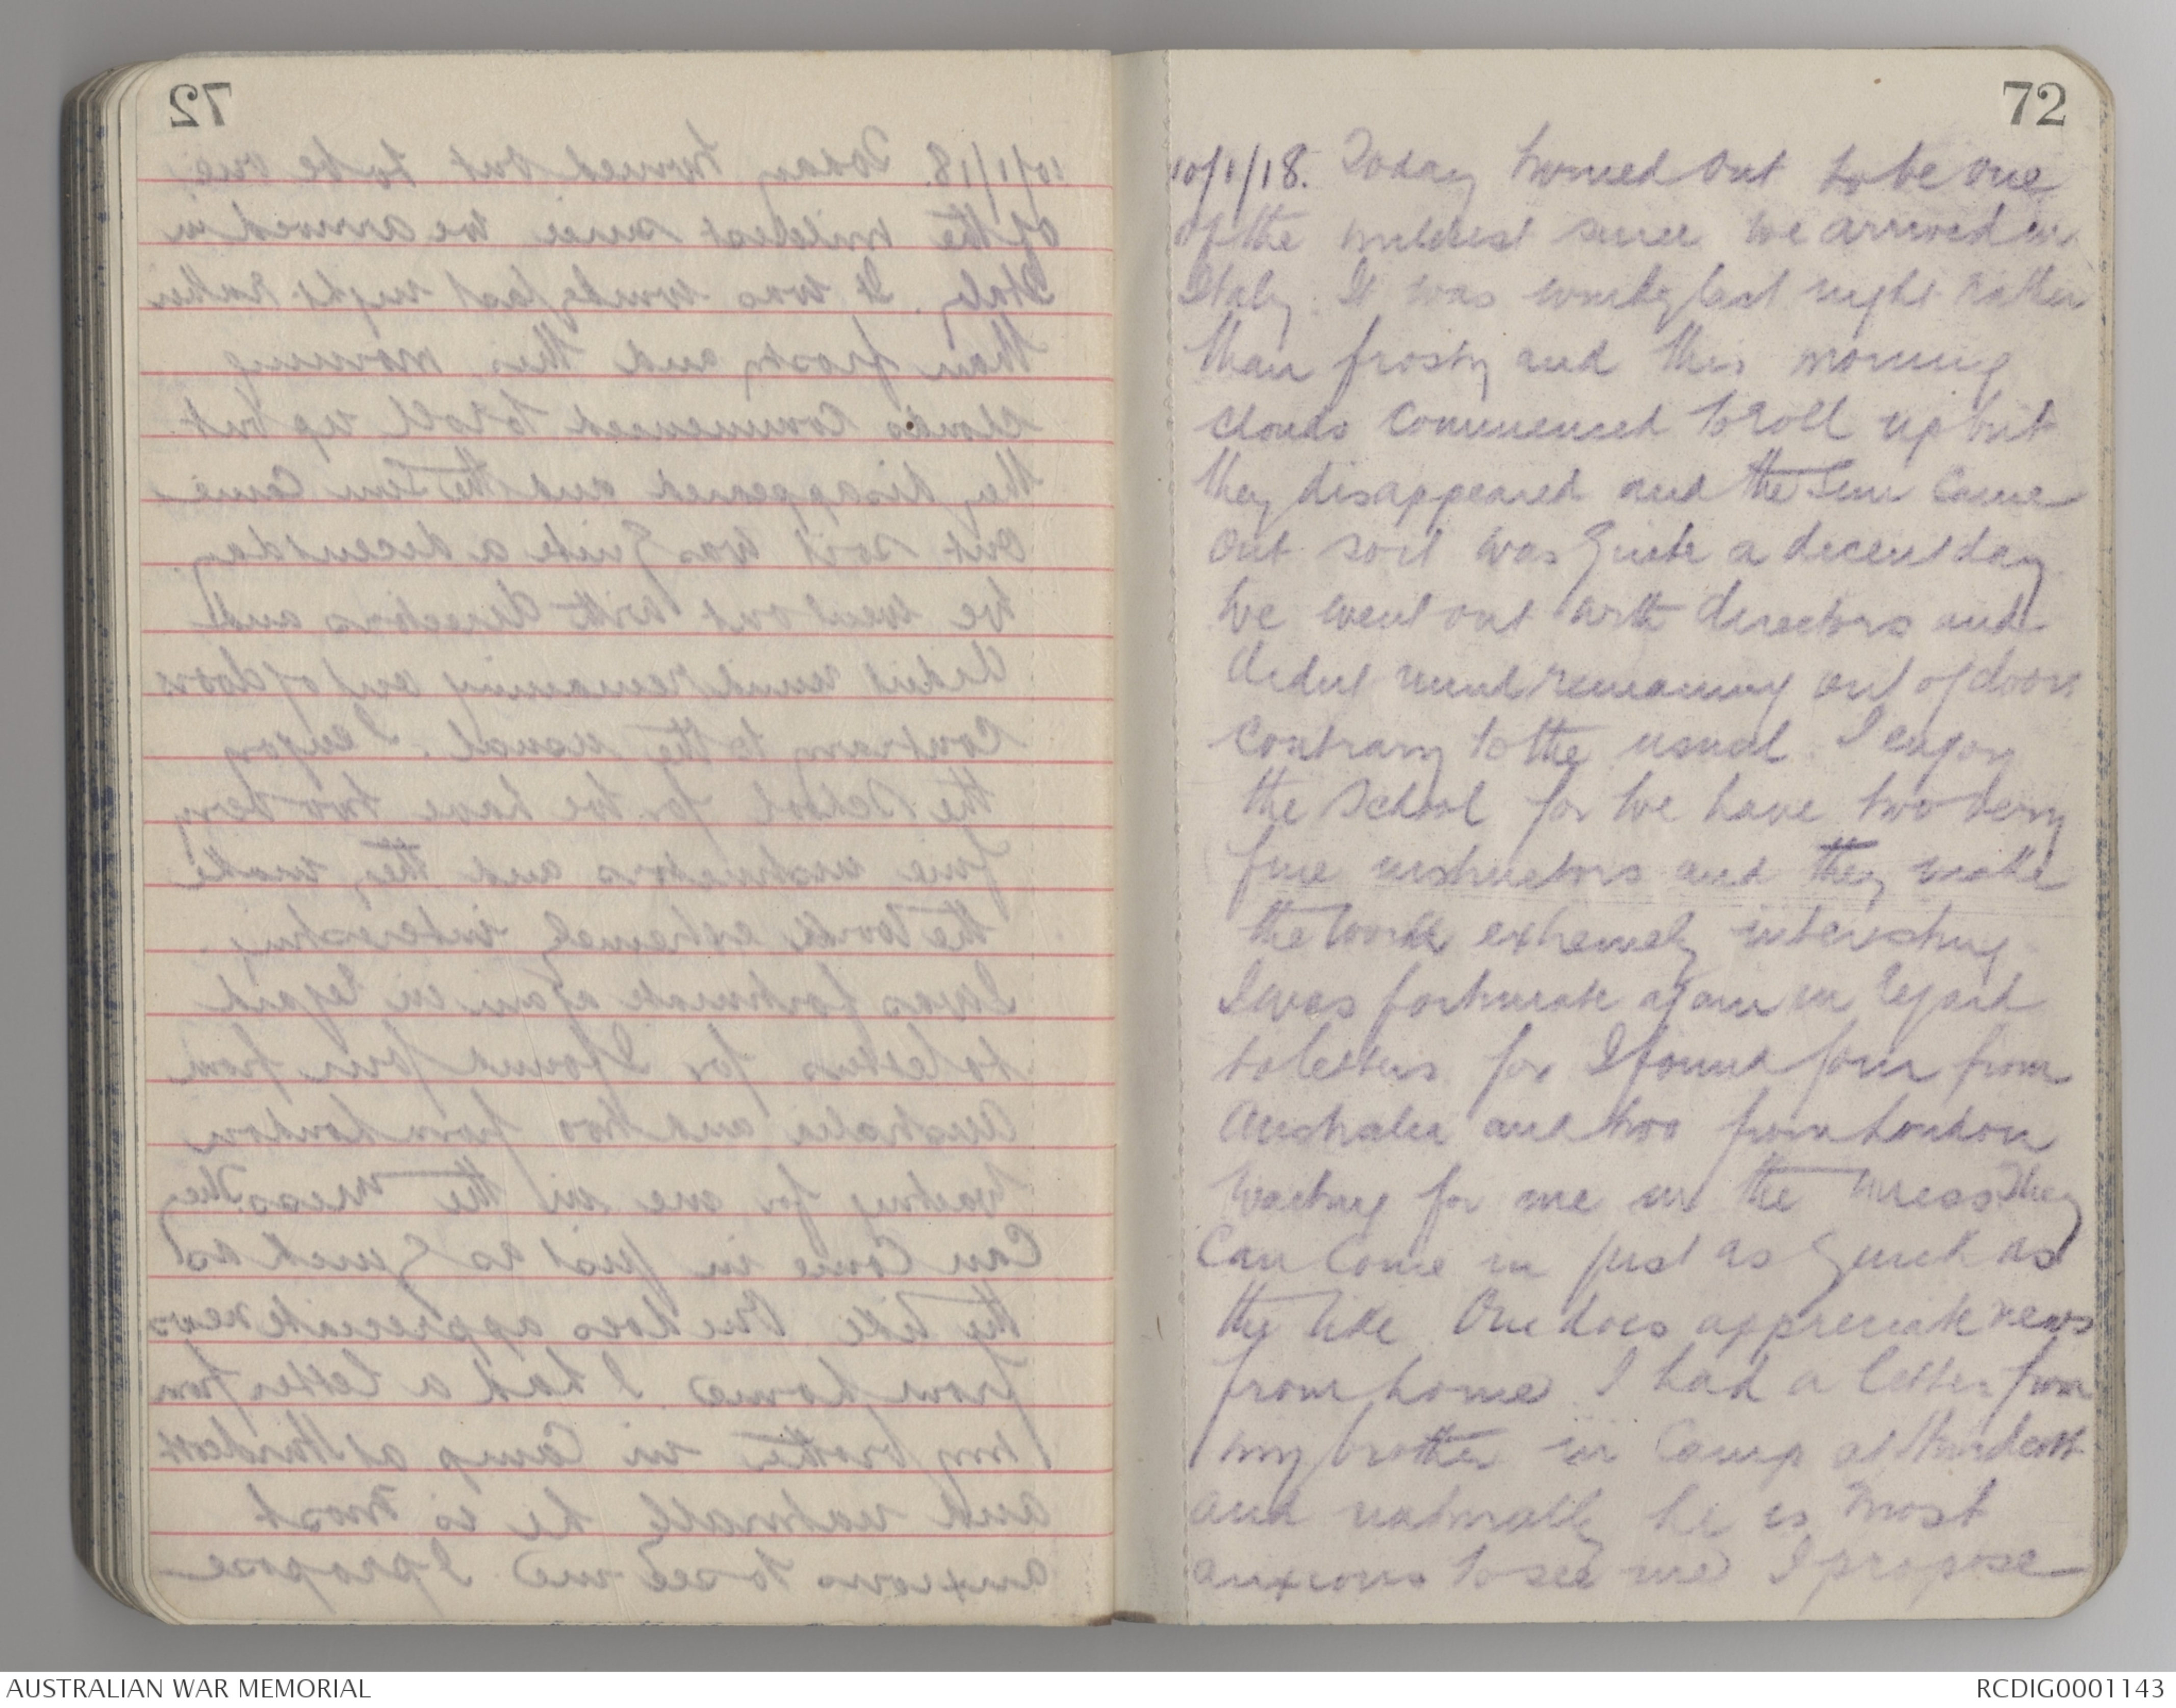 72
72
10/1/18. Today turned out to be one
of the mildest since we arrived in
Italy. It was windy last night rather
than frosty and this morning
clouds commenced to roll up but
they disappeared and the sun came
out so it was quite a decent day.
We went out with directors and
didnt mind remaining out of doors
contrary to the usual. I enjoy
the school for we have two very
fine instructors and they make
the work extremely interesting.
I was fortunate again in regard
to letters for I found four from
Australia and two from London
waiting for me in the mess. They
can come in just as quick as
they like. One does appreciate news
from home. I had a letter from
my brother in Camp at Hurdcott
and naturally he is most
anxious to see me I propose
AUSTRALIAN WAR MEMORIAL
RCDIG0001143